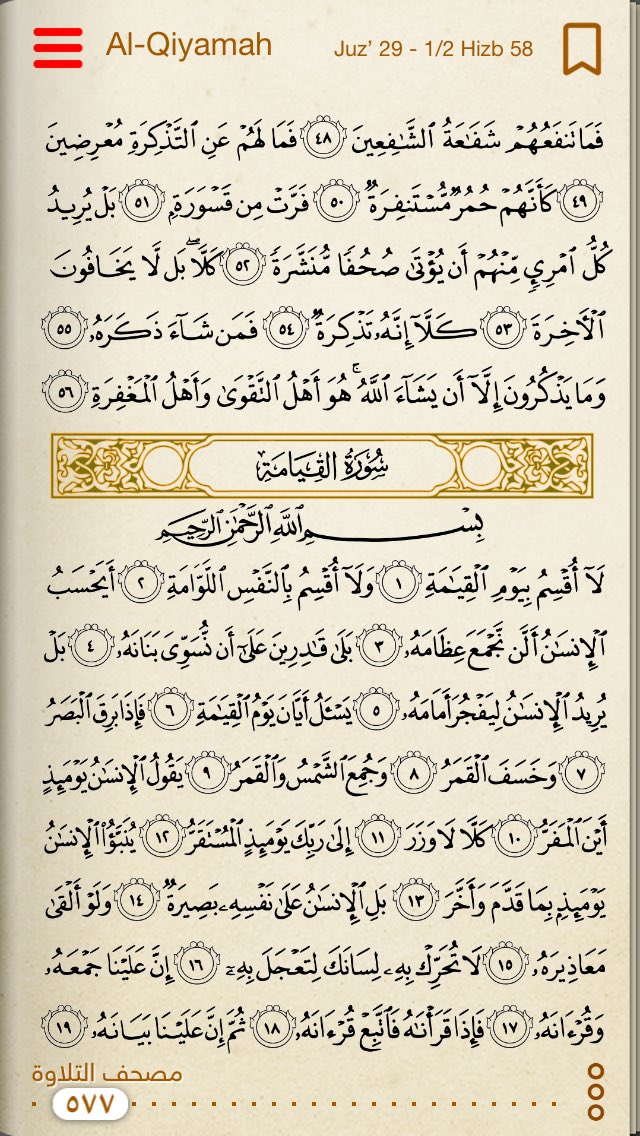 Al-Qiyamah
Juz’ 29 - 1/2 Hizb 58
فَمَا تَنفَعُهُمْ شَفَٰعَةُ ٱلشَّٰفِعِينَ ٤٨ فَمَا لَهُمْ عَنِ ٱلتَّذْكِرَةِ مُعْرِضِينَ
٤٩ كَأَنَّهُمْ حُمُرٌ مُّسْتَنفِرَةٌ ٥٠ فَرَّتْ مِن قَسْوَرَةٍۭ ٥١ بَلْ يُرِيدُ
كُلُّ ٱمْرِئٍ مِّنْهُمْ أَن يُؤْتَىٰ صُحُفًا مُّنَشَّرَةً ٥٢ كَلَّاۖ بَل لَّا يَخَافُونَ
ٱلْأَخِرَةَ ٥٣ كَلَّآ إِنَّهُۥ تَذْكِرَةٌ ٥٤ فَمَن شَآءَ ذَكَرَهُۥ ٥٥
وَمَا يَذْكُرُونَ إِلَّآ أَن يَشَآءَ ٱللَّهُۚ هُوَ أَهْلُ ٱلتَّقْوَىٰ وَأَهْلُ ٱلْمَغْفِرَةِ ٥٦
سُورَةُ القِيَامَةِ
بِسْمِ ٱللَّهِ ٱلرَّحْمَٰنِ ٱلرَّحِيمِ
لَآ أُقْسِمُ بِيَوْمِ ٱلْقِيَٰمَةِ ١ وَلَآ أُقْسِمُ بِٱلنَّفْسِ ٱللَّوَّامَةِ ٢ أَيَحْسَبُ
ٱلْإِنسَٰنُ أَلَّن نَّجْمَعَ عِظَامَهُۥ ٣ بَلَىٰ قَٰدِرِينَ عَلَىٰٓ أَن نُّسَوِّىَ بَنَانَهُۥ ٤ بَلْ
يُرِيدُ ٱلْإِنسَٰنُ لِيَفْجُرَ أَمَامَهُۥ ٥ يَسْـَٔلُ أَيَّانَ يَوْمُ ٱلْقِيَٰمَةِ ٦ فَإِذَا بَرِقَ ٱلْبَصَرُ
٧ وَخَسَفَ ٱلْقَمَرُ ٨ وَجُمِعَ ٱلشَّمْسُ وَٱلْقَمَرُ ٩ يَقُولُ ٱلْإِنسَٰنُ يَوْمَئِذٍ
أَيْنَ ٱلْمَفَرُّ ١٠ كَلَّا لَا وَزَرَ ١١ إِلَىٰ رَبِّكَ يَوْمَئِذٍ ٱلْمُسْتَقَرُّ ١٢ يُنَبَّؤُا۟ ٱلْإِنسَٰنُ
يَوْمَئِذٍۭ بِمَا قَدَّمَ وَأَخَّرَ ١٣ بَلِ ٱلْإِنسَٰنُ عَلَىٰ نَفْسِهِۦ بَصِيرَةٌ ١٤ وَلَوْ أَلْقَىٰ
مَعَاذِيرَهُۥ ١٥ لَا تُحَرِّكْ بِهِۦ لِسَانَكَ لِتَعْجَلَ بِهِۦٓ ١٦ إِنَّ عَلَيْنَا جَمْعَهُۥ
وَقُرْءَانَهُۥ ١٧ فَإِذَا قَرَأْنَٰهُ فَٱتَّبِعْ قُرْءَانَهُۥ ١٨ ثُمَّ إِنَّ عَلَيْنَا بَيَانَهُۥ ١٩
مصحف التلاوة
٥٧٧